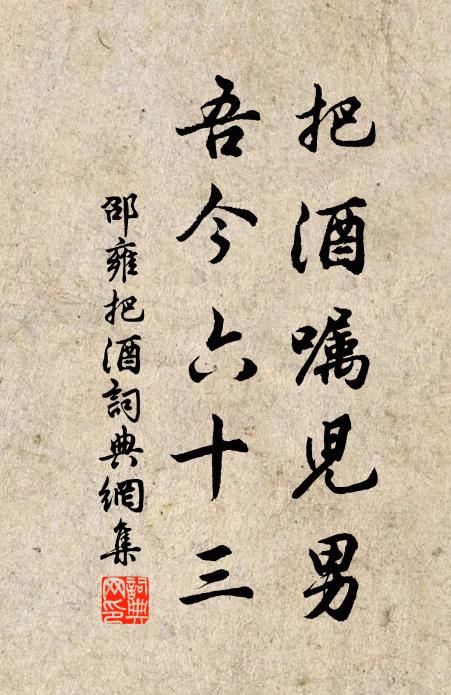 把酒嘱児男
吾今六十三
邵雍把酒詞典網集
詞典
网印